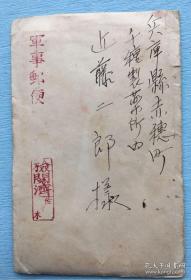 兵庫縣赤穂町
千種製薬所内
近藤二郎様
軍事郵便
檢閲濟